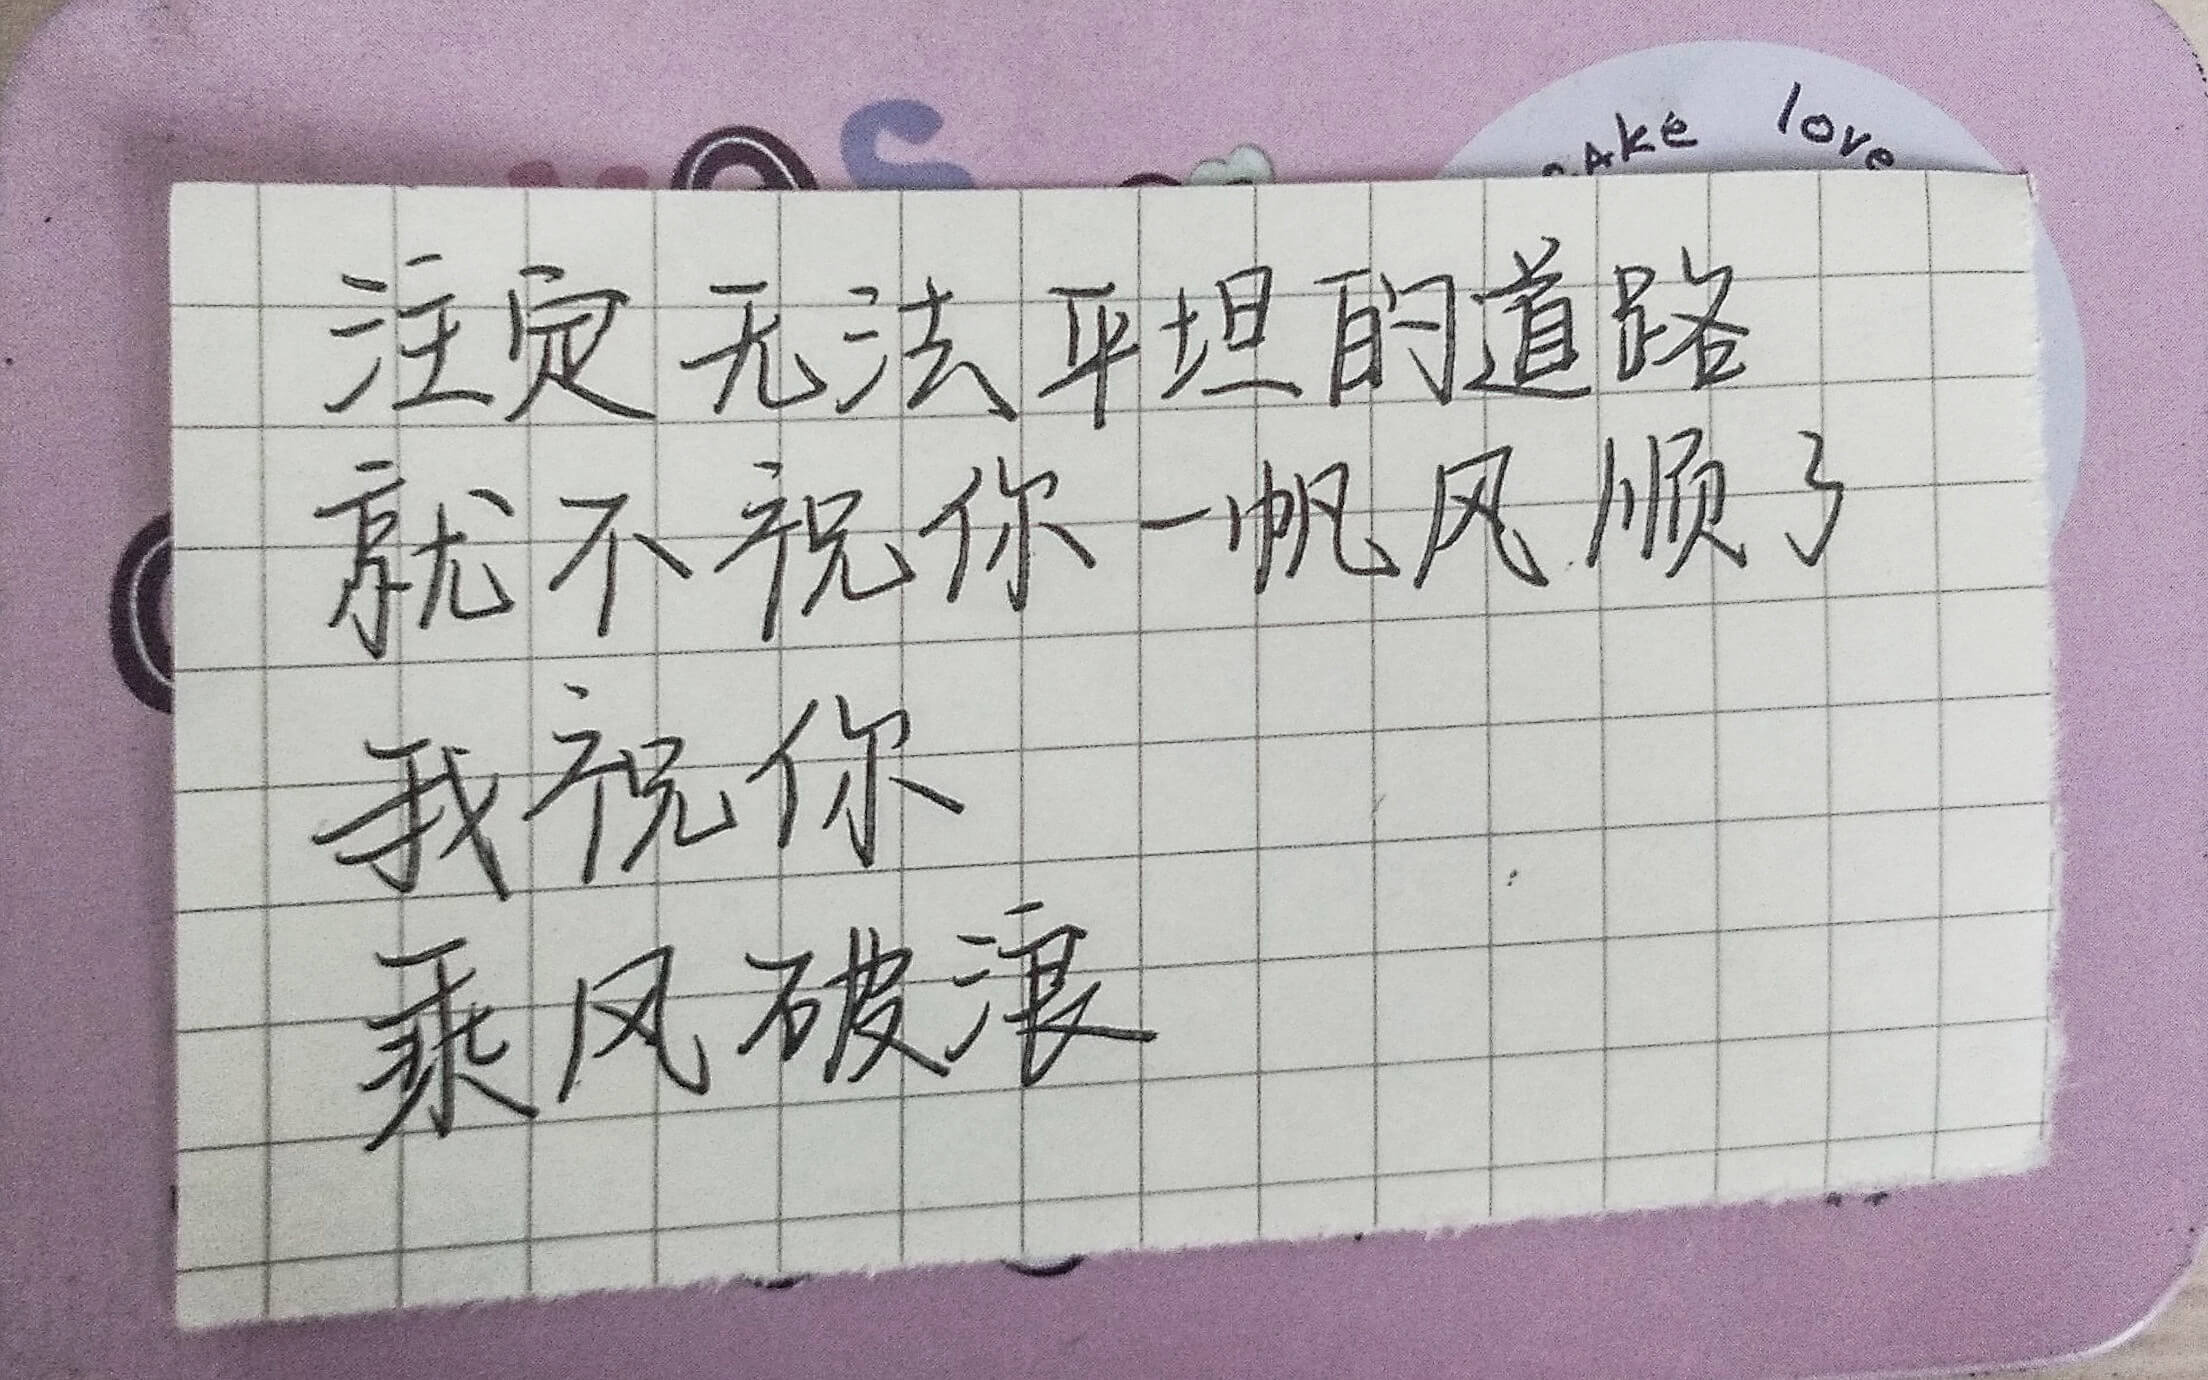 love
注定无法平坦的道路
就不祝你一帆风顺了
我祝你
乘风破浪